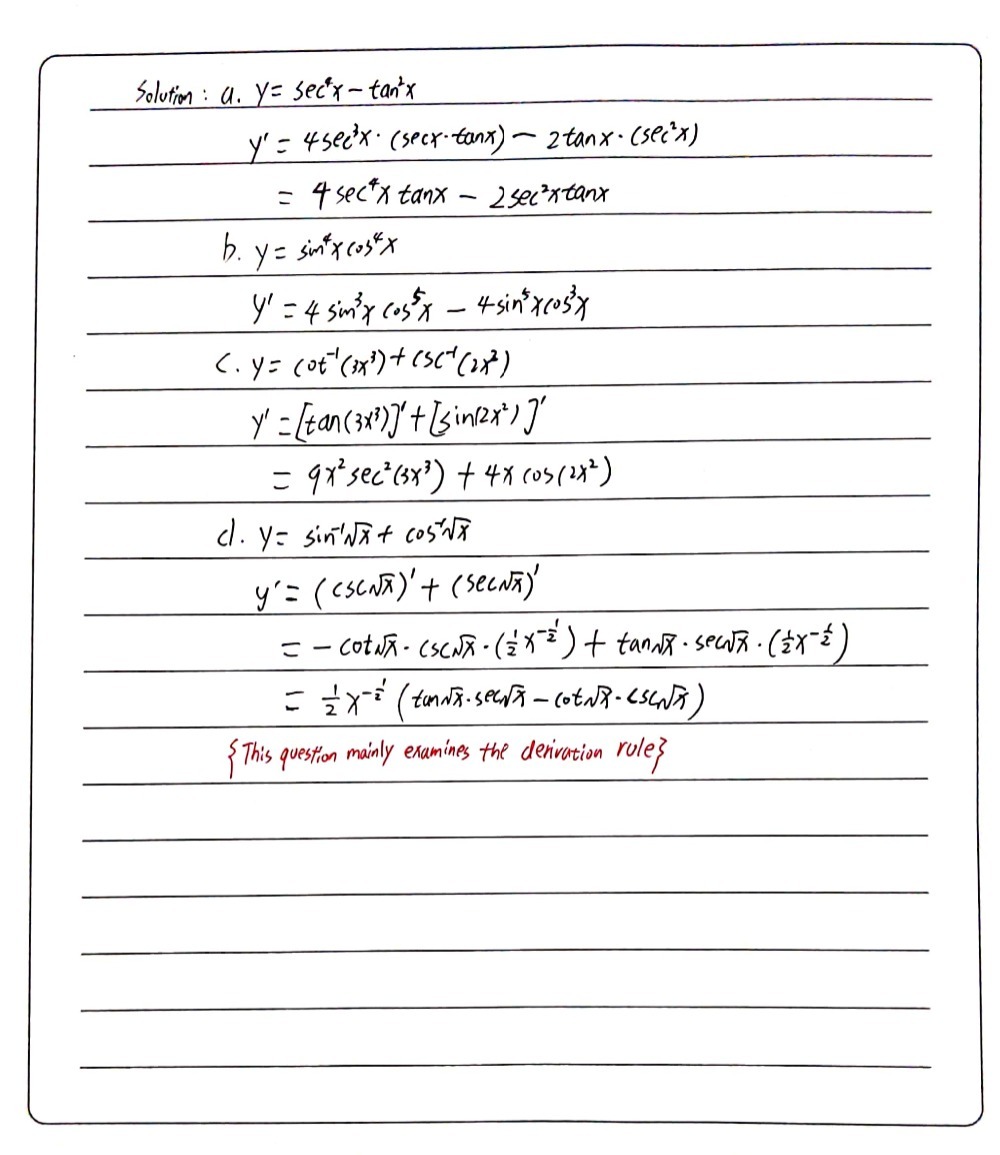 Solution : a. y = sec⁴x − tan²x
y' = 4sec³x · (secx·tanx) − 2tanx · (sec²x)
= 4sec⁴x tanx − 2sec²xtanx
b. y = sin⁴x cos⁴x
y' = 4 sin³x cos⁵x − 4sin⁵xcos³x
c. y = cot⁻¹(3x³) + csc⁻¹(2x²)
y' = [tan(3x³)]' + [sin(2x²)]'
= 9x²sec²(3x³) + 4x cos(2x²)
d. y = sin⁻¹√x + cos⁻¹√x
y' = (csc√x)' + (sec√x)'
= −cot√x · csc√x · (½x^-½) + tan√x · sec√x · (½x^-½)
= ½x^-½ (tan√x · sec√x − cot√x · csc√x)
{This question mainly examines the derivation rule}